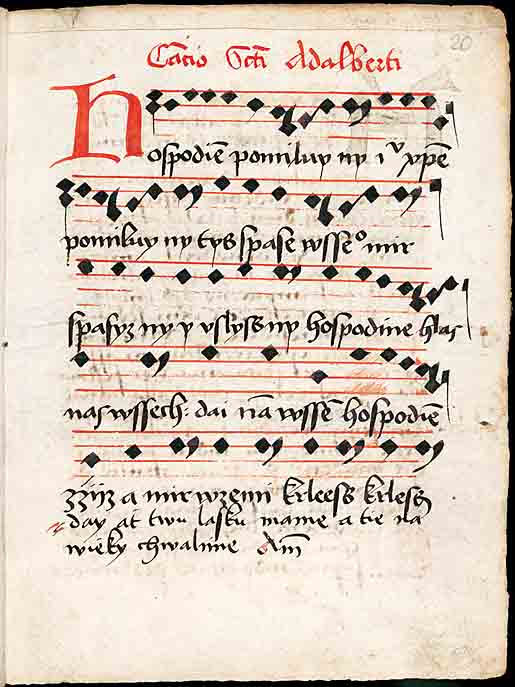 20
Cācio Sc̄ti Adalberti
Hospodiē pomiluy ny iᵛ xp̄e
pomiluy ny tys spase wsseᵒ mir
spasyz ny y vslyss ny hospodine hlas
nas wssech: dai nā wssē hospodiē
zzijz a mir wzemi krleess krless
day at twu lasku mame a tie na
wieky chwalime Am̄